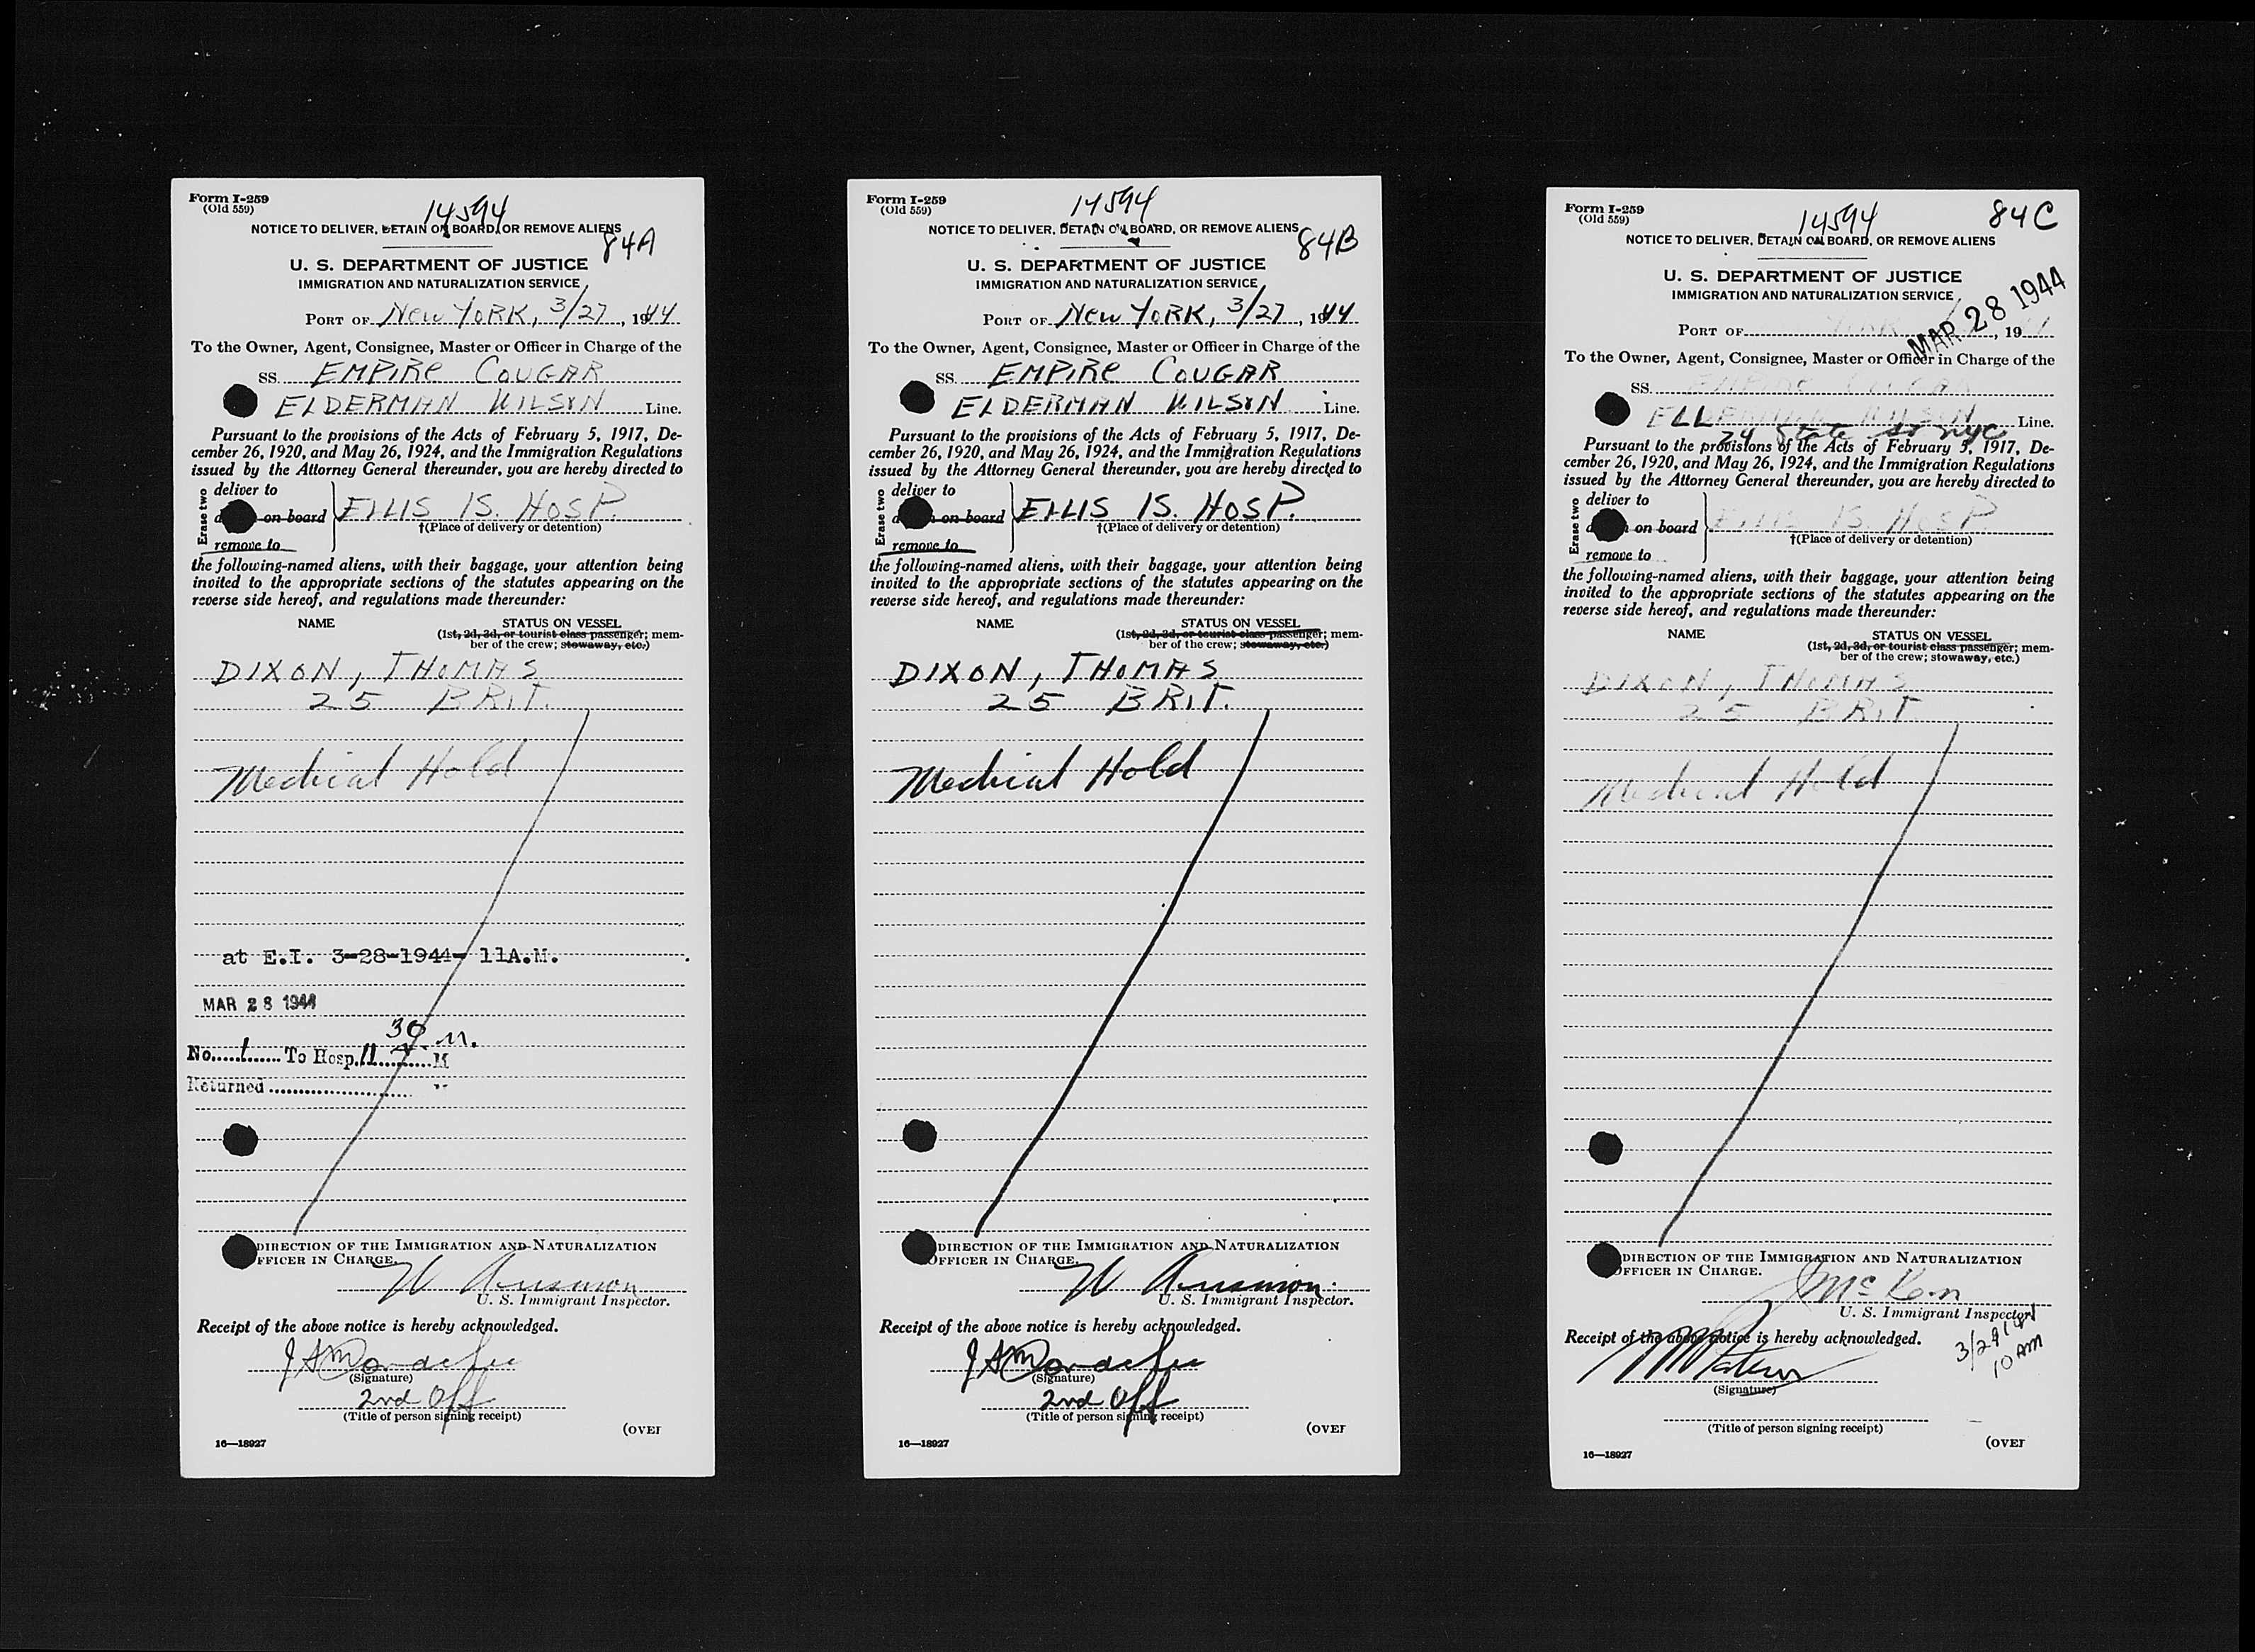 Form I-259
(Old 559)
14594
NOTICE TO DELIVER, DETAIN ON BOARD, OR REMOVE ALIENS
84A
U. S. DEPARTMENT OF JUSTICE
IMMIGRATION AND NATURALIZATION SERVICE
PORT OF New YORK, 3/27, 1944
To the Owner, Agent, Consignee, Master or Officer in Charge of the
SS. EMPIRE COUGAR
ELDERMAN WILSON Line.
Pursuant to the provisions of the Acts of February 5, 1917, De-
cember 26, 1920, and May 26, 1924, and the Immigration Regulations
issued by the Attorney General thereunder, you are hereby directed to
Erase two
deliver to
on board
remove to
ELLIS IS. HOSP.
†(Place of delivery or detention)
the following-named aliens, with their baggage, your attention being
invited to the appropriate sections of the statutes appearing on the
reverse side hereof, and regulations made thereunder:
NAME STATUS ON VESSEL
(1st, 2d, 3d, or tourist class passenger; mem-
ber of the crew; stowaway, etc.)
DIXON, THOMAS
25 BRIT.
Medical Hold
at E.I. 3-28-1944- 11A.M.
MAR 28 1944
No. 1 To Hosp. 11 30 M
Returned
DIRECTION OF THE IMMIGRATION AND NATURALIZATION
FFICER IN CHARGE.
U. S. Immigrant Inspector.
Receipt of the above notice is hereby acknowledged.
(Signature)
2nd Off
(Title of person signing receipt)
(OVER
16—18927
Form I-259
(Old 559)
14594
NOTICE TO DELIVER, DETAIN ON BOARD, OR REMOVE ALIENS
84B
U. S. DEPARTMENT OF JUSTICE
IMMIGRATION AND NATURALIZATION SERVICE
PORT OF New YORK, 3/27, 1944
To the Owner, Agent, Consignee, Master or Officer in Charge of the
SS. EMPIRE COUGAR
ELDERMAN WILSON Line.
Pursuant to the provisions of the Acts of February 5, 1917, De-
cember 26, 1920, and May 26, 1924, and the Immigration Regulations
issued by the Attorney General thereunder, you are hereby directed to
Erase two
deliver to
on board
remove to
ELLIS IS. HOSP.
†(Place of delivery or detention)
the following-named aliens, with their baggage, your attention being
invited to the appropriate sections of the statutes appearing on the
reverse side hereof, and regulations made thereunder:
NAME STATUS ON VESSEL
(1st, 2d, 3d, or tourist class passenger; mem-
ber of the crew; stowaway, etc.)
DIXON, THOMAS
25 BRIT.
Medical Hold
DIRECTION OF THE IMMIGRATION AND NATURALIZATION
OFFICER IN CHARGE.
U. S. Immigrant Inspector.
Receipt of the above notice is hereby acknowledged.
(Signature)
2nd Off
(Title of person signing receipt)
(OVER
16—18927
Form I-259
(Old 559)
14594
84C
NOTICE TO DELIVER, DETAIN ON BOARD, OR REMOVE ALIENS
U. S. DEPARTMENT OF JUSTICE
IMMIGRATION AND NATURALIZATION SERVICE
MAR 28 1944
PORT OF YORK, 19
To the Owner, Agent, Consignee, Master or Officer in Charge of the
SS. EMPIRE COUGAR
WILSON Line.
24 State St NYC
Pursuant to the provisions of the Acts of February 5, 1917, De-
cember 26, 1920, and May 26, 1924, and the Immigration Regulations
issued by the Attorney General thereunder, you are hereby directed to
Erase two
deliver to
on board
remove to
ELLIS IS. HOSP.
†(Place of delivery or detention)
the following-named aliens, with their baggage, your attention being
invited to the appropriate sections of the statutes appearing on the
reverse side hereof, and regulations made thereunder:
NAME STATUS ON VESSEL
(1st, 2d, 3d, or tourist class passenger; mem-
ber of the crew; stowaway, etc.)
DIXON, THOMAS
25 BRIT.
Medical Hold
DIRECTION OF THE IMMIGRATION AND NATURALIZATION
OFFICER IN CHARGE.
U. S. Immigrant Inspector.
Receipt of the above notice is hereby acknowledged.
10 AM
(Signature)
(Title of person signing receipt)
(OVER
16—18927